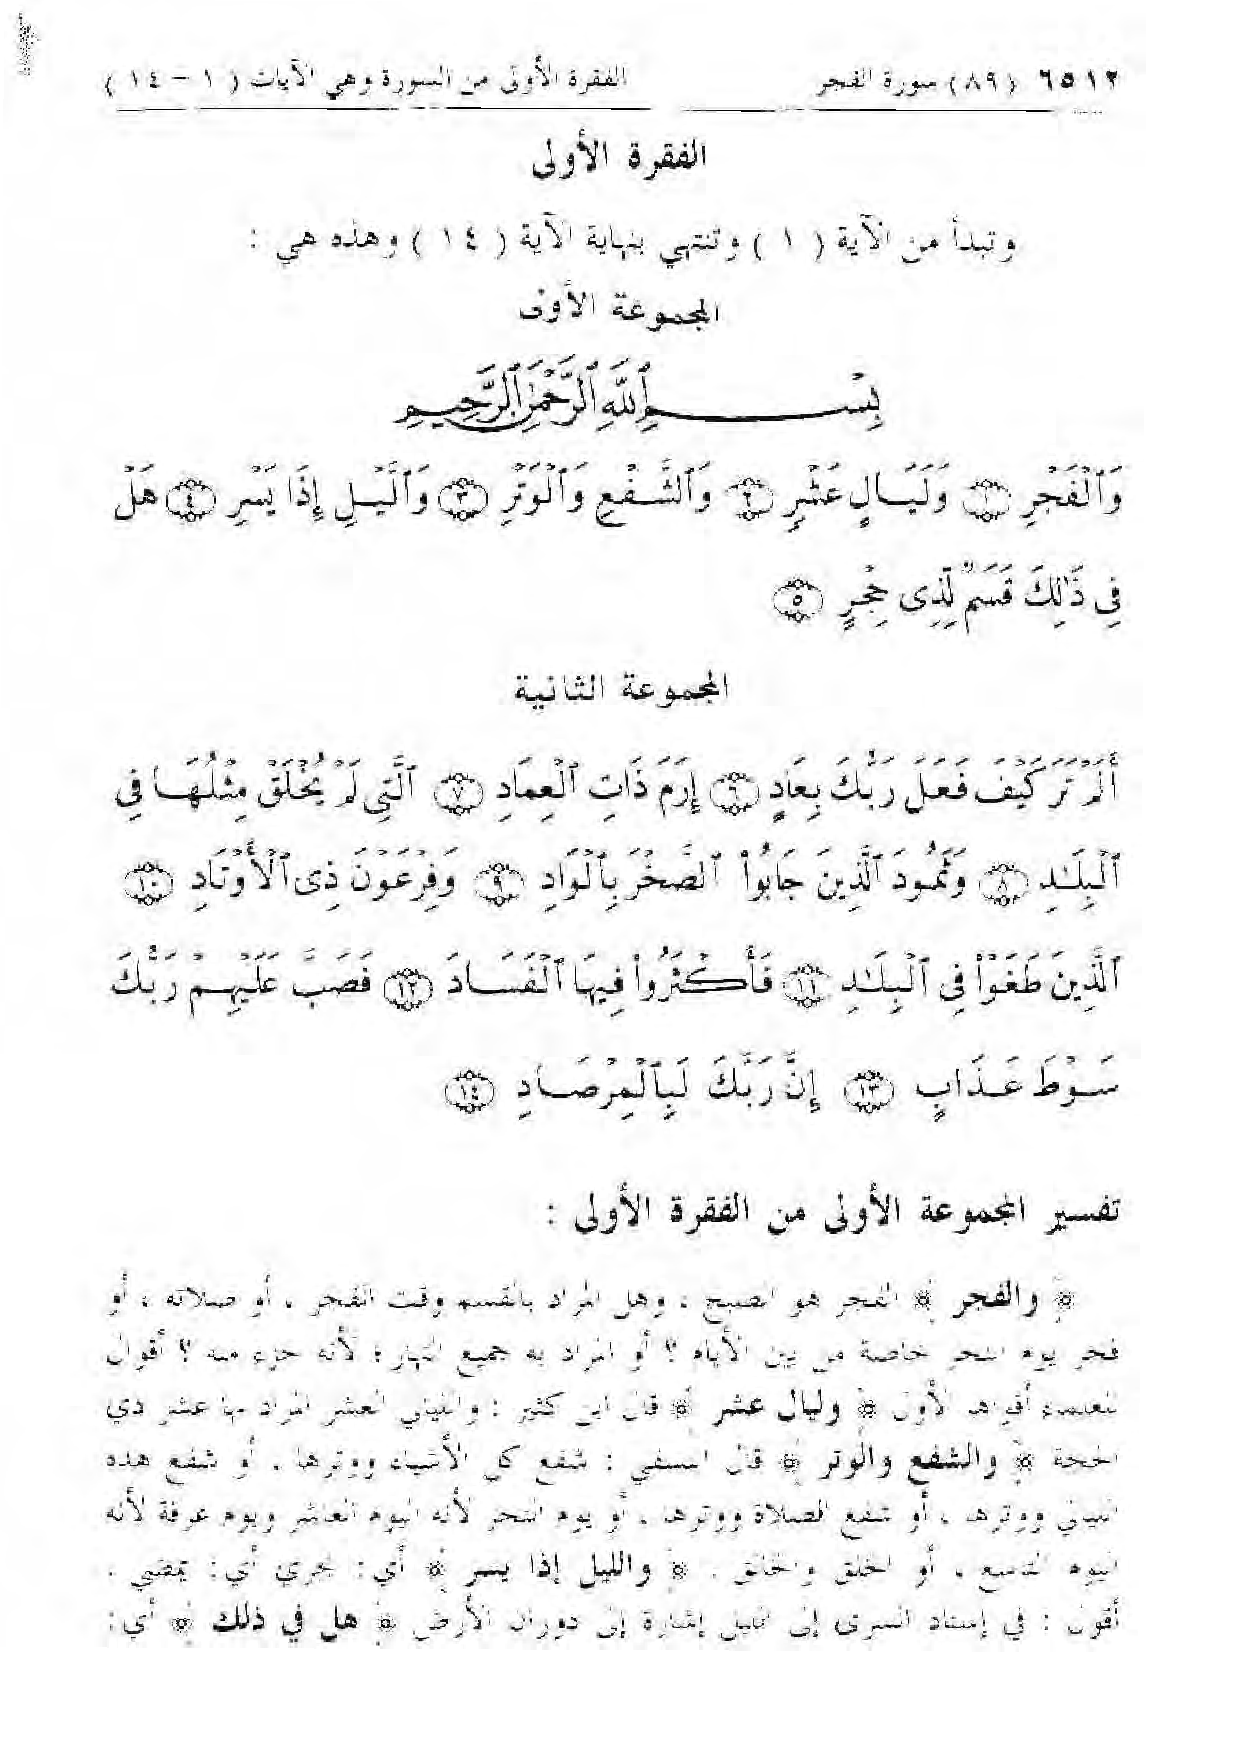 ٦٥١٢ (٨٩) سورة الفجر الفقرة الأولى من السورة وهي الآيات ( ١ - ١٤ )
الفقرة الأولى
وتبدأ من الآية ( ١ ) وتنتهي بنهاية الآية ( ١٤ ) وهذه هي :
المجموعة الأولى
بِسْمِ ٱللَّهِ ٱلرَّحْمَٰنِ ٱلرَّحِيمِ
وَٱلْفَجْرِ ١ وَلَيَالٍ عَشْرٍ ٢ وَٱلشَّفْعِ وَٱلْوَتْرِ ٣ وَٱلَّيْلِ إِذَا يَسْرِ ٤ هَلْ
فِى ذَٰلِكَ قَسَمٌ لِّذِى حِجْرٍ ٥
المجموعة الثانية
أَلَمْ تَرَ كَيْفَ فَعَلَ رَبُّكَ بِعَادٍ ٦ إِرَمَ ذَاتِ ٱلْعِمَادِ ٧ ٱلَّتِى لَمْ يُخْلَقْ مِثْلُهَا فِى
ٱلْبِلَٰدِ ٨ وَثَمُودَ ٱلَّذِينَ جَابُوا۟ ٱلصَّخْرَ بِٱلْوَادِ ٩ وَفِرْعَوْنَ ذِى ٱلْأَوْتَادِ ١٠
ٱلَّذِينَ طَغَوْا۟ فِى ٱلْبِلَٰدِ ١١ فَأَكْثَرُوا۟ فِيهَا ٱلْفَسَادَ ١٢ فَصَبَّ عَلَيْهِمْ رَبُّكَ
سَوْطَ عَذَابٍ ١٣ إِنَّ رَبَّكَ لَبِٱلْمِرْصَادِ ١٤
تفسير المجموعة الأولى من الفقرة الأولى :
﴿ والفجر ﴾ الفجر هو الصبح ، وهل المراد بالقسم وقت الفجر ، أو صلاته ، أو
فجر يوم النحر خاصة من بين الأيام ؟ أو المراد به جميع النهار ؛ لأنه جزء منه ؟ أقوال
للعلماء أقواها الأول ﴿ وليال عشر ﴾ قال ابن كثير : والليالي العشر المراد بها عشر ذي
الحجة ﴿ والشفع والوتر ﴾ قال النسفي : شفع كل الأشياء ووترها ، أو شفع هذه
الليالي ووترها ، أو شفع الصلاة ووترها ، أو يوم النحر لأنه اليوم العاشر ويوم عرفة لأنه
اليوم التاسع ، أو الخلق والخالق . ﴿ والليل إذا يسر ﴾ أي : يجري أي : يمضي .
أقول : في إسناد السرى إلى الليل إشارة إلى دوران الأرض ﴿ هل في ذلك ﴾ أي :